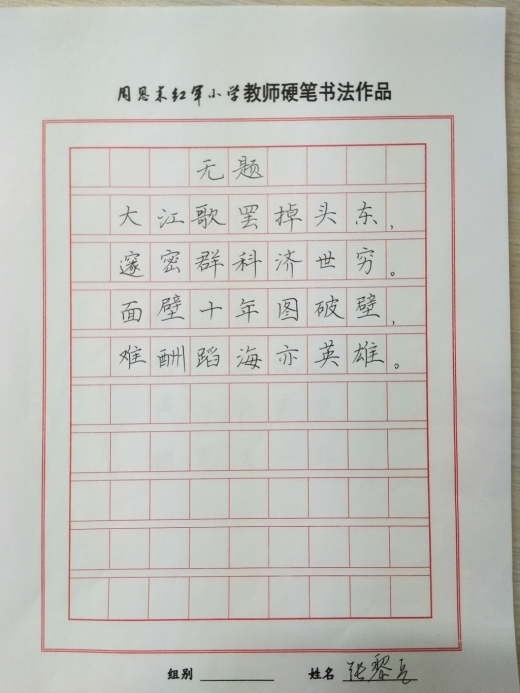 周恩来红军小学教师硬笔书法作品
无题
大江歌罢掉头东,
邃密群科济世穷。
面壁十年图破壁,
难酬蹈海亦英雄。
组别 姓名 张黎兵